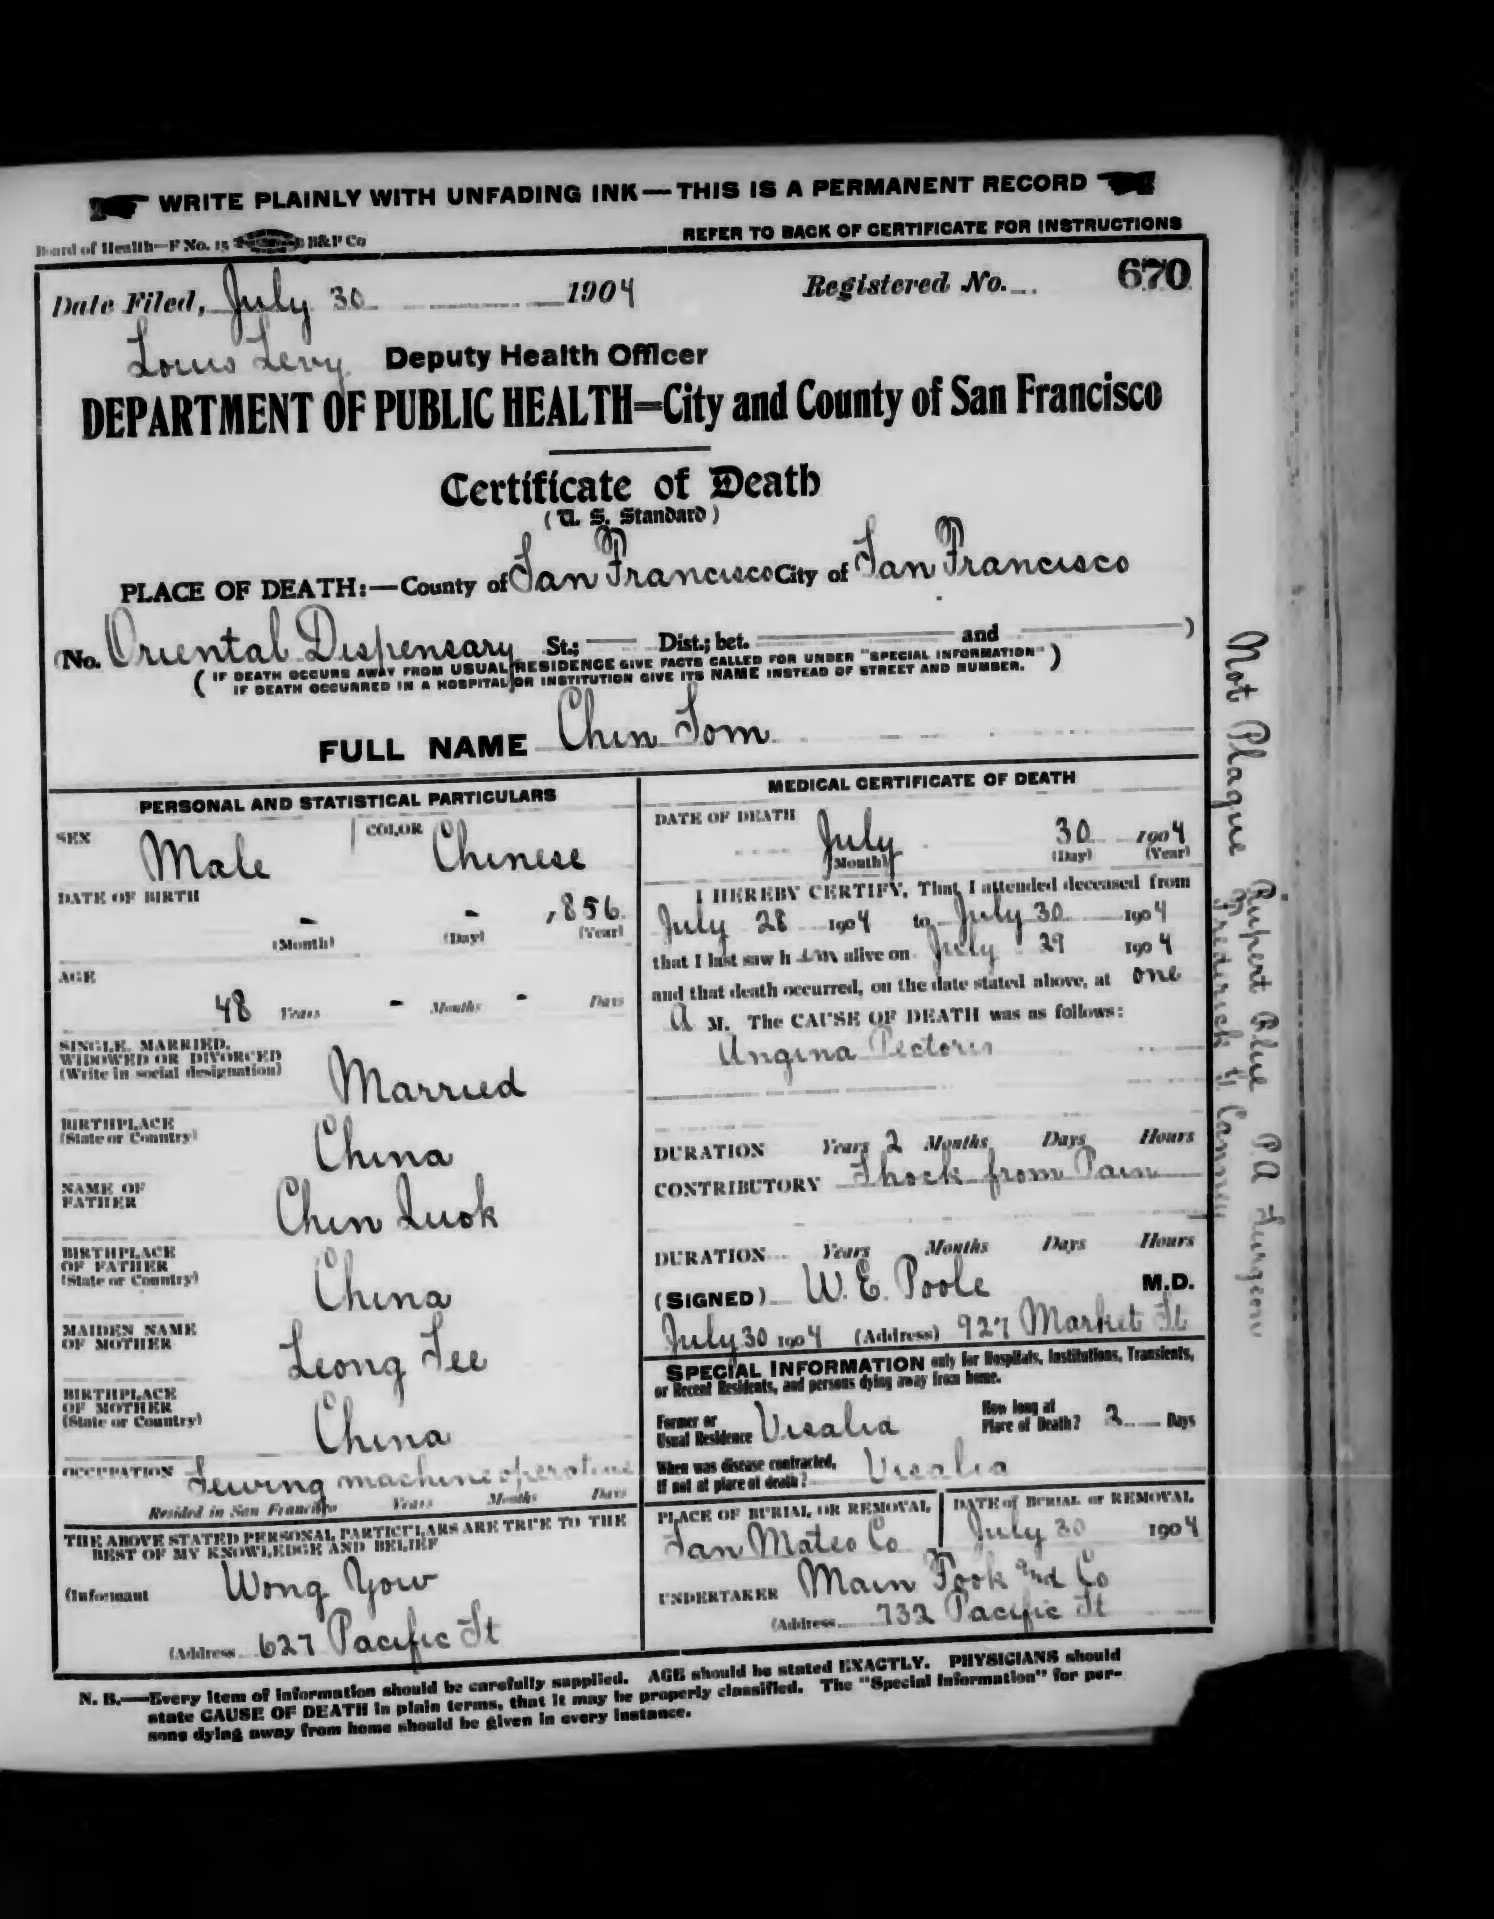 WRITE PLAINLY WITH UNFADING INK—THIS IS A PERMANENT RECORD
Board of Health—F No. 15 H&P Co
REFER TO BACK OF CERTIFICATE FOR INSTRUCTIONS
Date Filed, July 30 1904 Registered No. 670
Louis Levy Deputy Health Officer
DEPARTMENT OF PUBLIC HEALTH=City and County of San Francisco
Certificate of Death
(U. S. Standard)
PLACE OF DEATH:—County of San Francisco City of San Francisco
(No. Oriental Dispensary St.; Dist.; bet. and )
(IF DEATH OCCURS AWAY FROM USUAL RESIDENCE GIVE FACTS CALLED FOR UNDER "SPECIAL INFORMATION"
IF DEATH OCCURRED IN A HOSPITAL OR INSTITUTION GIVE ITS NAME INSTEAD OF STREET AND NUMBER.)
FULL NAME Chin Som
PERSONAL AND STATISTICAL PARTICULARS
SEX Male COLOR Chinese
DATE OF BIRTH
- - 1856
(Month) (Day) (Year)
AGE
48 Years - Months - Days
SINGLE, MARRIED,
WIDOWED OR DIVORCED
(Write in social designation) Married
BIRTHPLACE
(State or Country) China
NAME OF
FATHER Chin Quok
BIRTHPLACE
OF FATHER
(State or Country) China
MAIDEN NAME
OF MOTHER Leong See
BIRTHPLACE
OF MOTHER
(State or Country) China
OCCUPATION Sewing machine operative
Resided in San Francisco Years Months Days
THE ABOVE STATED PERSONAL PARTICULARS ARE TRUE TO THE
BEST OF MY KNOWLEDGE AND BELIEF
(Informant Wong Yow
(Address 627 Pacific St
MEDICAL CERTIFICATE OF DEATH
DATE OF DEATH
July 30 1904
(Month) (Day) (Year)
I HEREBY CERTIFY, That I attended deceased from
July 28 1904 to July 30 1904
that I last saw h im alive on July 29 1904
and that death occurred, on the date stated above, at one
A M. The CAUSE OF DEATH was as follows:
Angina Pectoris
DURATION Years 2 Months Days Hours
CONTRIBUTORY Shock from Pain
DURATION Years Months Days Hours
(SIGNED) W. E. Poole M.D.
July 30 1904 (Address) 927 Market St
SPECIAL INFORMATION only for Hospitals, Institutions, Transients,
or Recent Residents, and persons dying away from home.
Former or
Usual Residence Visalia
How long at
Place of Death? 2 Days
When was disease contracted,
If not at place of death? Visalia
PLACE OF BURIAL OR REMOVAL San Mateo Co
DATE of BURIAL or REMOVAL July 30 1904
UNDERTAKER Main Fook and Co
(Address 732 Pacific St
N. B.—Every item of information should be carefully supplied. AGE should be stated EXACTLY. PHYSICIANS should
state CAUSE OF DEATH in plain terms, that it may be properly classified. The "Special Information" for per-
sons dying away from home should be given in every instance.
Not Plague Rupert Blue P.A Surgeon
Frederick H Canney